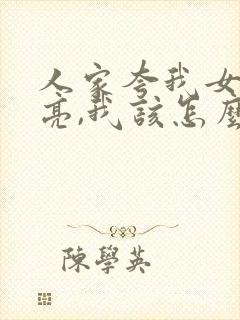 人家夸我女
亮,我该怎麼
陳學英